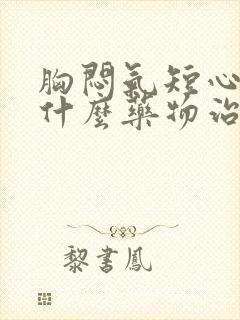 胸悶氣短心
什麼藥物治
黎書鳳